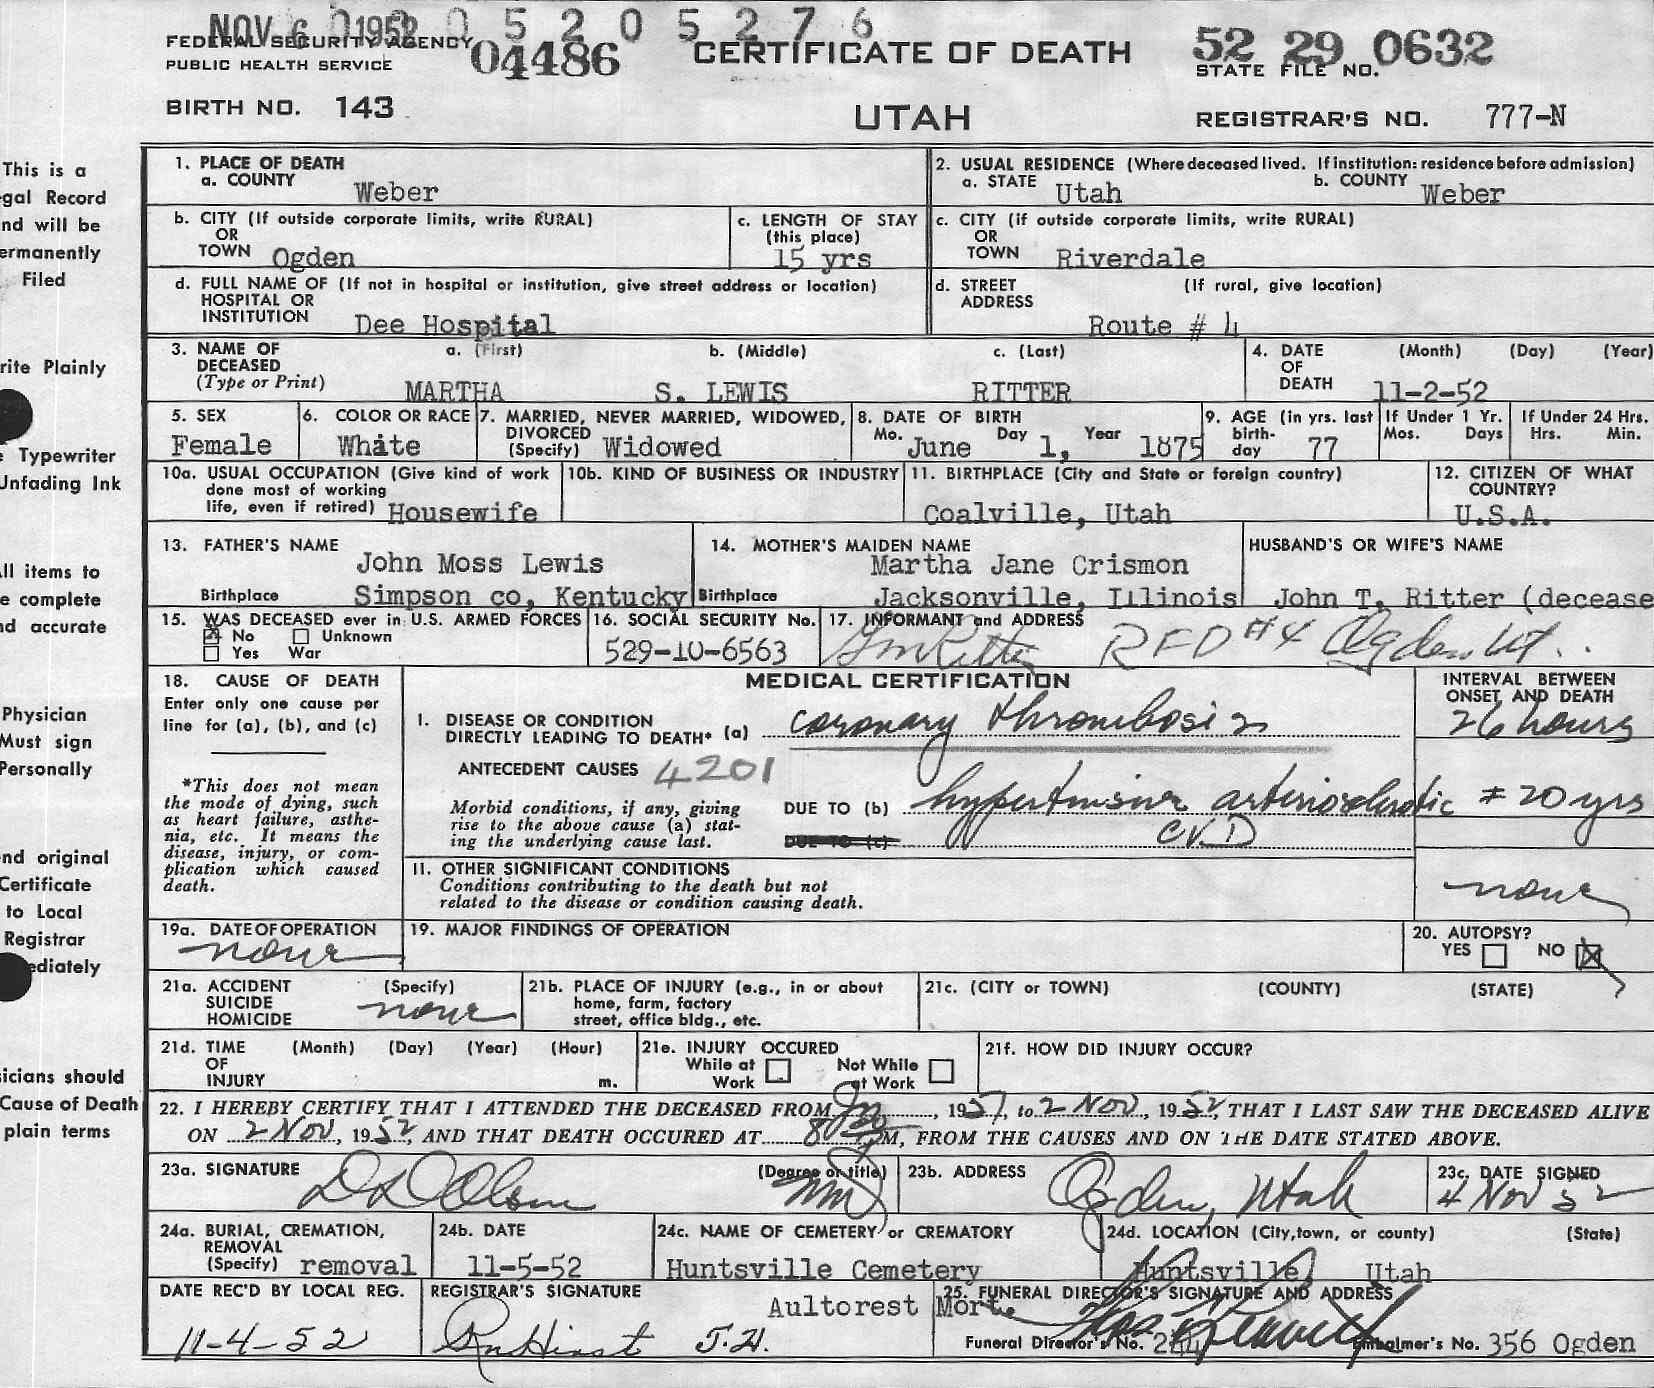 NOV 6 1952 0 0 5 2 0 5 2 7 6
FEDERAL SECURITY AGENCY 04486 CERTIFICATE OF DEATH 52 29 0632
PUBLIC HEALTH SERVICE STATE FILE NO.
BIRTH NO. 143 UTAH REGISTRAR'S NO. 777-N
This is a
gal Record
nd will be
ermanently
Filed
rite Plainly
e Typewriter
Unfading Ink
All items to
e complete
nd accurate
Physician
Must sign
Personally
nd original
Certificate
to Local
Registrar
ediately
sicians should
Cause of Death
plain terms
1. PLACE OF DEATH
a. COUNTY Weber
2. USUAL RESIDENCE (Where deceased lived. If institution: residence before admission)
a. STATE Utah b. COUNTY Weber
b. CITY (If outside corporate limits, write RURAL)
OR
TOWN Ogden
c. LENGTH OF STAY
(this place)
15 yrs
c. CITY (if outside corporate limits, write RURAL)
OR
TOWN Riverdale
d. FULL NAME OF (If not in hospital or institution, give street address or location)
HOSPITAL OR
INSTITUTION Dee Hospital
d. STREET (If rural, give location)
ADDRESS
Route # 4
3. NAME OF a. (First) b. (Middle) c. (Last)
DECEASED
(Type or Print) MARTHA S. LEWIS RITTER
4. DATE (Month) (Day) (Year)
OF
DEATH 11-2-52
5. SEX
Female
6. COLOR OR RACE
White
7. MARRIED, NEVER MARRIED, WIDOWED,
DIVORCED
(Specify) Widowed
8. DATE OF BIRTH
Mo. June Day 1, Year 1875
9. AGE (in yrs. last
birth-
day 77
If Under 1 Yr.
Mos. Days
If Under 24 Hrs.
Hrs. Min.
10a. USUAL OCCUPATION (Give kind of work
done most of working
life, even if retired) Housewife
10b. KIND OF BUSINESS OR INDUSTRY
11. BIRTHPLACE (City and State or foreign country)
Coalville, Utah
12. CITIZEN OF WHAT
COUNTRY?
U.S.A.
13. FATHER'S NAME
John Moss Lewis
Birthplace Simpson co, Kentucky
14. MOTHER'S MAIDEN NAME
Martha Jane Crismon
Birthplace Jacksonville, Illinois
HUSBAND'S OR WIFE'S NAME
John T. Ritter (decease
15. WAS DECEASED ever in U.S. ARMED FORCES
No Unknown
Yes War
16. SOCIAL SECURITY No.
529-10-6563
17. INFORMANT and ADDRESS
Ritter RFD #4 Ogden Ut.
18. CAUSE OF DEATH
Enter only one cause per
line for (a), (b), and (c)
*This does not mean
the mode of dying, such
as heart failure, asthe-
nia, etc. It means the
disease, injury, or com-
plication which caused
death.
MEDICAL CERTIFICATION
I. DISEASE OR CONDITION
DIRECTLY LEADING TO DEATH* (a) coronary thrombosis
ANTECEDENT CAUSES 4201
Morbid conditions, if any, giving
rise to the above cause (a) stat-
ing the underlying cause last.
DUE TO (b) hypertensive arteriosclerotic
DUE TO (c) CVD
11. OTHER SIGNIFICANT CONDITIONS
Conditions contributing to the death but not
related to the disease or condition causing death.
INTERVAL BETWEEN
ONSET AND DEATH
26 hours
± 20 yrs
none
19a. DATE OF OPERATION
none
19. MAJOR FINDINGS OF OPERATION
20. AUTOPSY?
YES NO
21a. ACCIDENT (Specify)
SUICIDE none
HOMICIDE
21b. PLACE OF INJURY (e.g., in or about
home, farm, factory
street, office bldg., etc.
21c. (CITY or TOWN) (COUNTY) (STATE)
21d. TIME (Month) (Day) (Year) (Hour)
OF
INJURY m.
21e. INJURY OCCURED
While at Not While
Work at Work
21f. HOW DID INJURY OCCUR?
22. I HEREBY CERTIFY THAT I ATTENDED THE DECEASED FROM Jan, 1951, to 2 Nov, 1952, THAT I LAST SAW THE DECEASED ALIVE
ON 2 Nov, 1952, AND THAT DEATH OCCURED AT 8 M, FROM THE CAUSES AND ON THE DATE STATED ABOVE.
23a. SIGNATURE (Degree or title)
Olson MD
23b. ADDRESS
Ogden, Utah
23c. DATE SIGNED
4 Nov 52
24a. BURIAL, CREMATION,
REMOVAL
(Specify) removal
24b. DATE
11-5-52
24c. NAME OF CEMETERY or CREMATORY
Huntsville Cemetery
24d. LOCATION (City, town, or county) (State)
Huntsville, Utah
DATE REC'D BY LOCAL REG.
11-4-52
REGISTRAR'S SIGNATURE
Hirst
25. FUNERAL DIRECTOR'S SIGNATURE AND ADDRESS
Aultorest Mort.
Funeral Director's No. 244 Embalmer's No. 356 Ogden